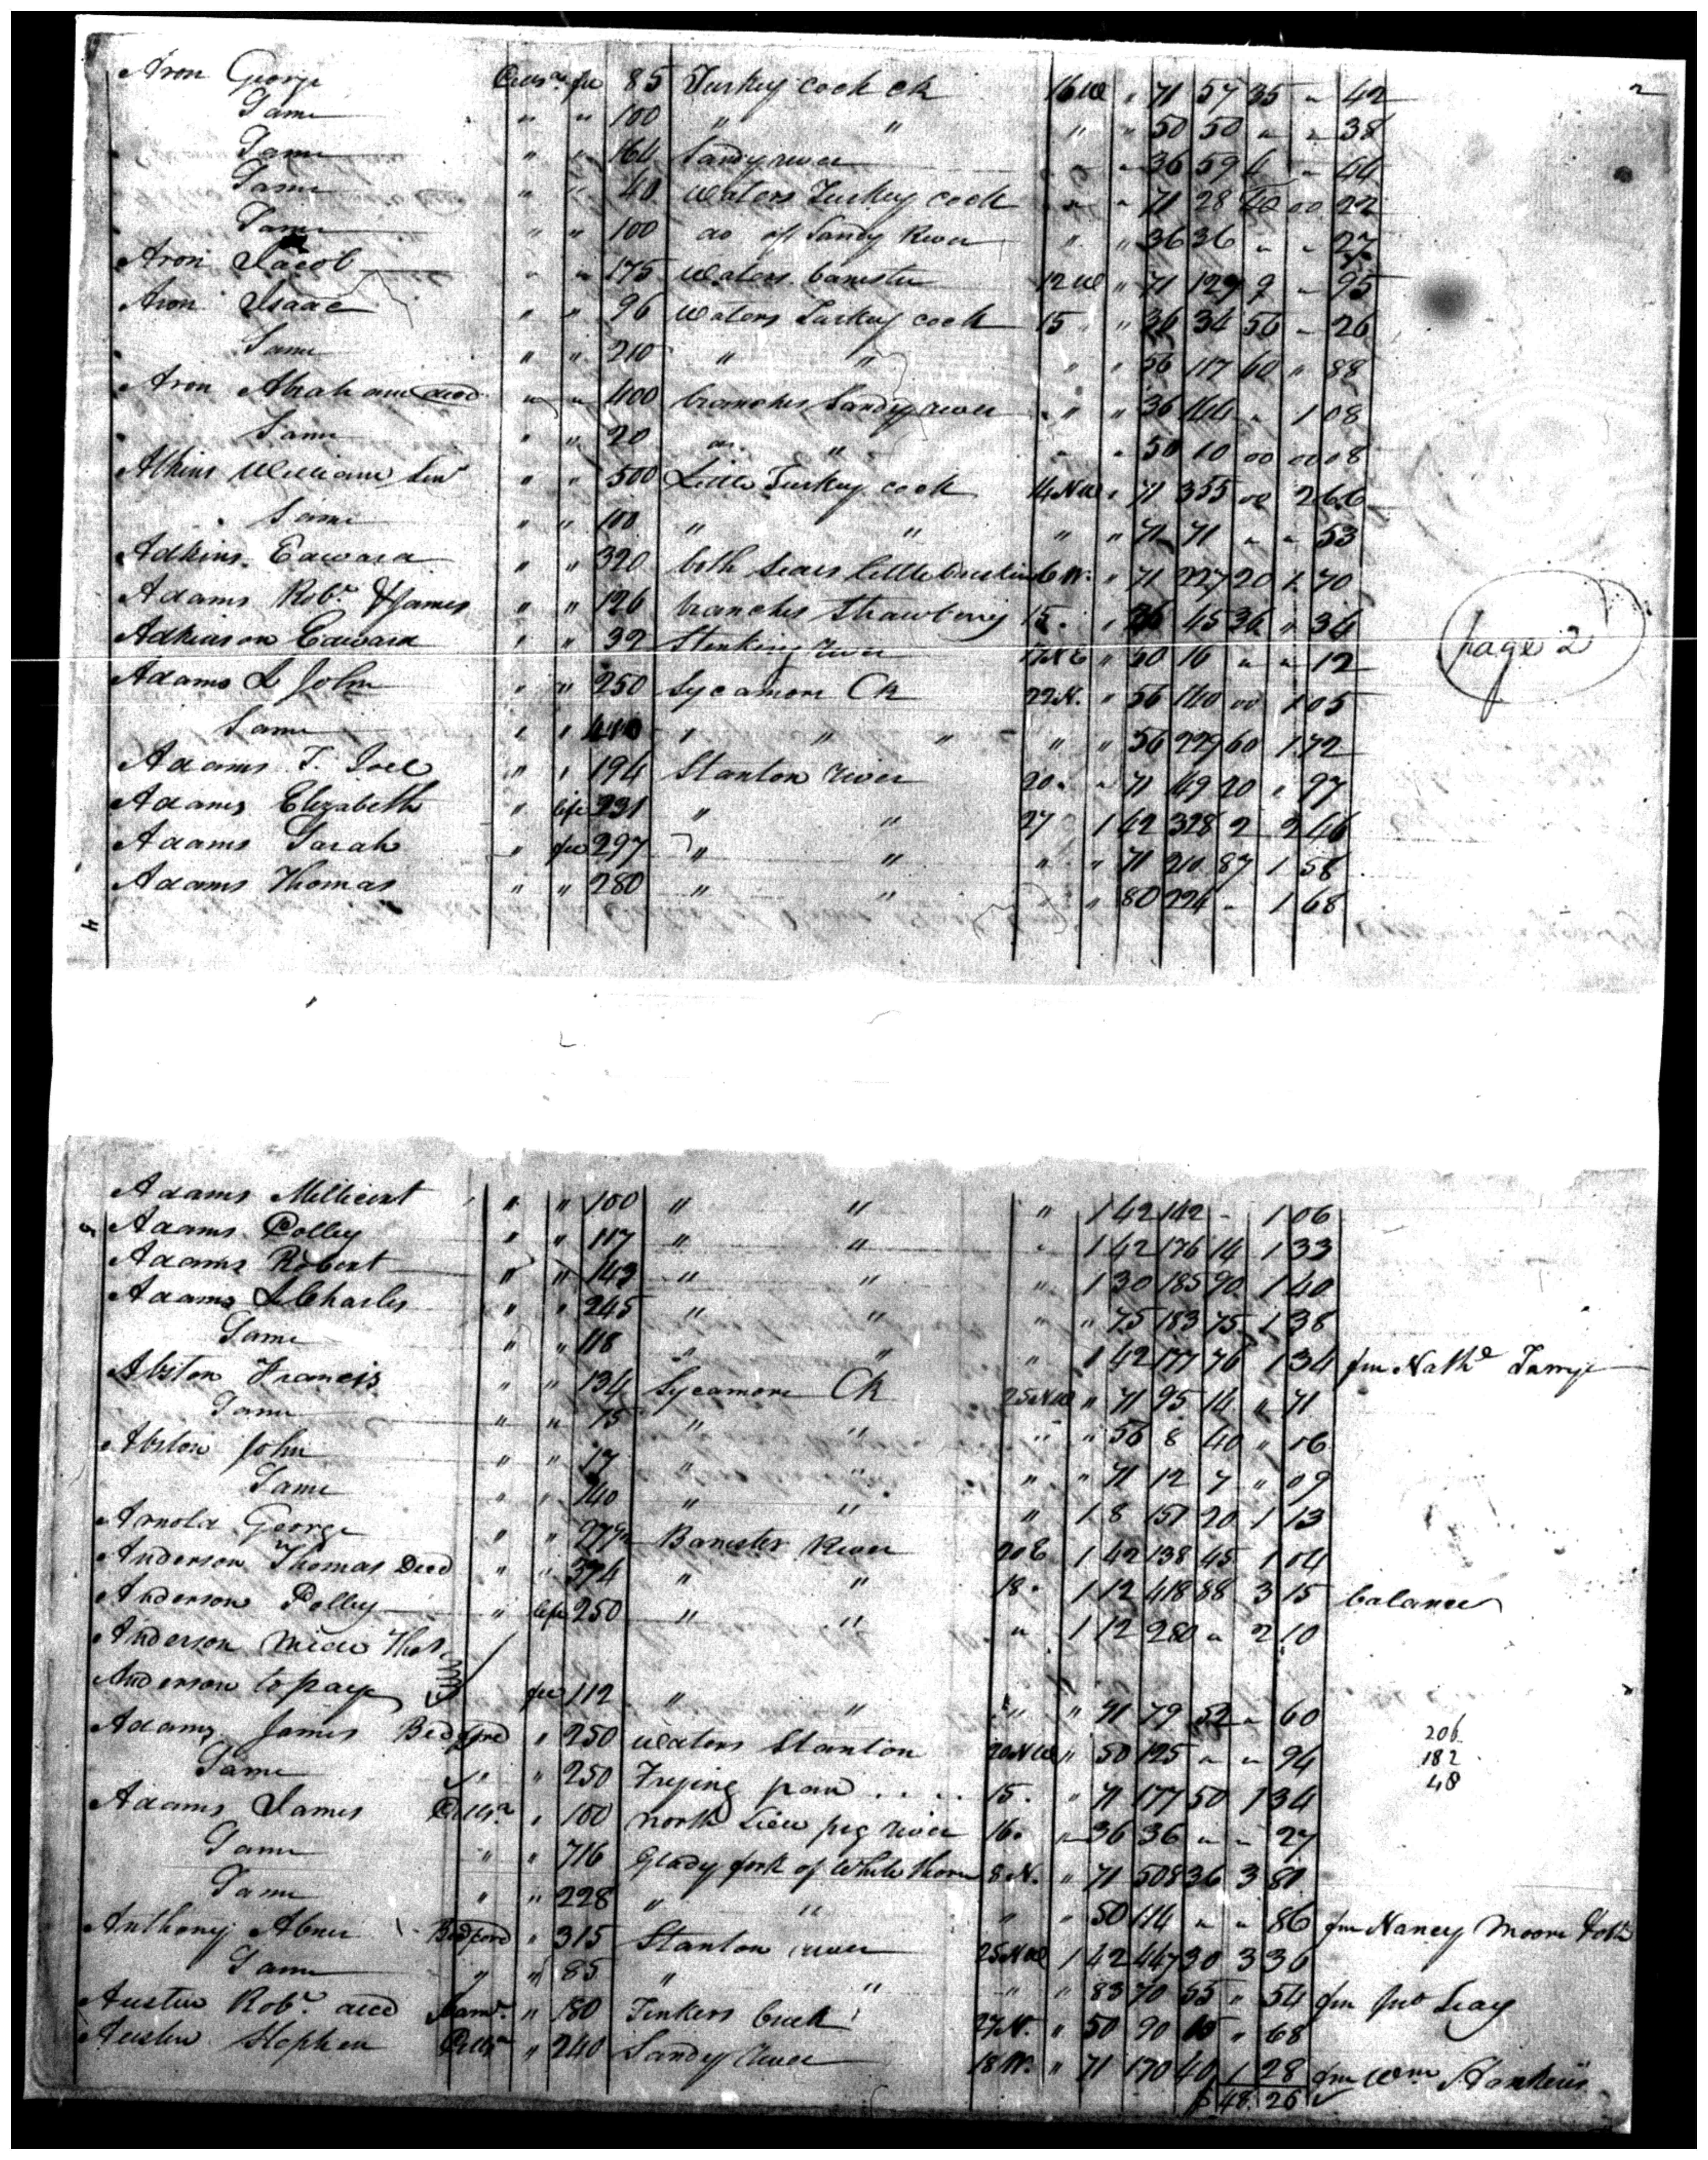 2
Aron George Pitts.a fee 85 Turkey cock ck 16 W " 71 57 35 " 42
Same " " 100 " " " " 50 50 " " 38
Same " " 164 Sandy river " " 36 59 4 " 44
Same " " 40 Waters Turkey cock " " 71 28 40 00 22
Same " " 100 do of Sandy River " " 36 36 " " 27
Aron Jacob " " 175 Waters banister 12 W " 71 129 9 " 95
Aron Isaac " " 96 Waters Turkey cock 15 " " 36 34 56 " 26
Same " " 210 " " " " 56 117 60 " 88
Aron Abraham decd " " 400 branches Sandy river " " 36 144 " 1 08
Same " " 20 do " " " 50 10 00 00 08
Atkins William Senr " " 500 Little Turkey cock 14 NW " 71 355 00 2 66
Same " " 100 " " " " 71 71 " " 53
Adkins Edward " " 320 both sides little 16 W. " 71 227 20 1 70
Adams Robt. & James " " 126 branches Strawberry 15. " 36 45 36 " 34
Adkinson Edward " " 32 Stinking river NE " 50 16 " " 12
page 2
Adams L John " " 250 Sycamore Ck 22 N. " 56 140 00 1 05
Same " " 410 " " " " " 56 229 60 1 72
Adams T. Joel " " 194 Stanton river 20. " 71 49 20 " 97
Adams Elizabeth " life 231 " " 27 1 42 328 2 2 46
Adams Sarah " fee 297 " " " " 71 210 87 1 58
Adams Thomas " " 280 " " " " 80 224 " 1 68
Adams Millicent " " 100 " " " 1 42 142 - 1 06
Adams Polley " " 117 " " " 1 42 176 14 1 33
Adams Robert " " 143 " " " 1 30 185 90 1 40
Adams L Charles " " 245 " " " " 75 183 75 1 38
Same " " 118 " " " 1 42 177 76 1 34 fm Nathl
Abston Francis " " 134 Sycamore Ck 25 NW " 71 95 14 " 71
Same " " 15 " " " " 56 8 40 " 06
Abston John " " 17 " " " " 71 12 7 " 09
Same " " 140 " " " 1 8 151 20 1 13
Arnold George " " Banister River 20 E 1 42 138 45 1 04
Anderson Thomas Decd " " 374 " " 18. 1 12 418 88 3 15 balance
Anderson Polley " life 250 " " " 1 12 280 " 2 10
Anderson Thos.
Anderson to pay fee 112 " " " " 71 79 52 " 60
206
Adams James Bedford " 250 Waters Stanton 20 NW " 50 125 " " 94
182
Same " " 250 Frying pan . . . . 15. " 71 177 50 1 34
48
Adams James Pitts.a " 100 north side pig river 16. " 36 36 " " 27
Same " " 716 Glady fork of White thorn 8 N. " 71 508 36 3 81
Same " " 228 " " " " 50 114 " " 86 fm Nancy Moore
Anthony Abner Bedford " 315 Stanton river 25 NW 1 42 447 30 3 36
Same " " 85 " " " " 83 70 55 " 54 fm Jno Leay
Austin Robt. decd " 180 Tinkers Creek 27 N. " 50 90 " 68
Austin Stephen Pitts.a " 240 Sandy River 18 W. " 71 170 40 1 28 fm Wm
$ 48.26